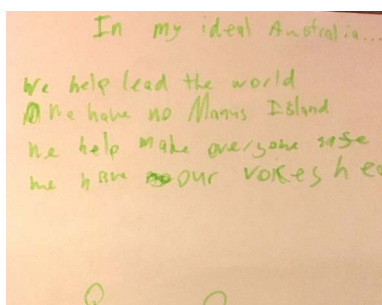 In my ideal Australia...
We help lead the world
We have no Manus Island
we help make everyone safe
we have our voices hea